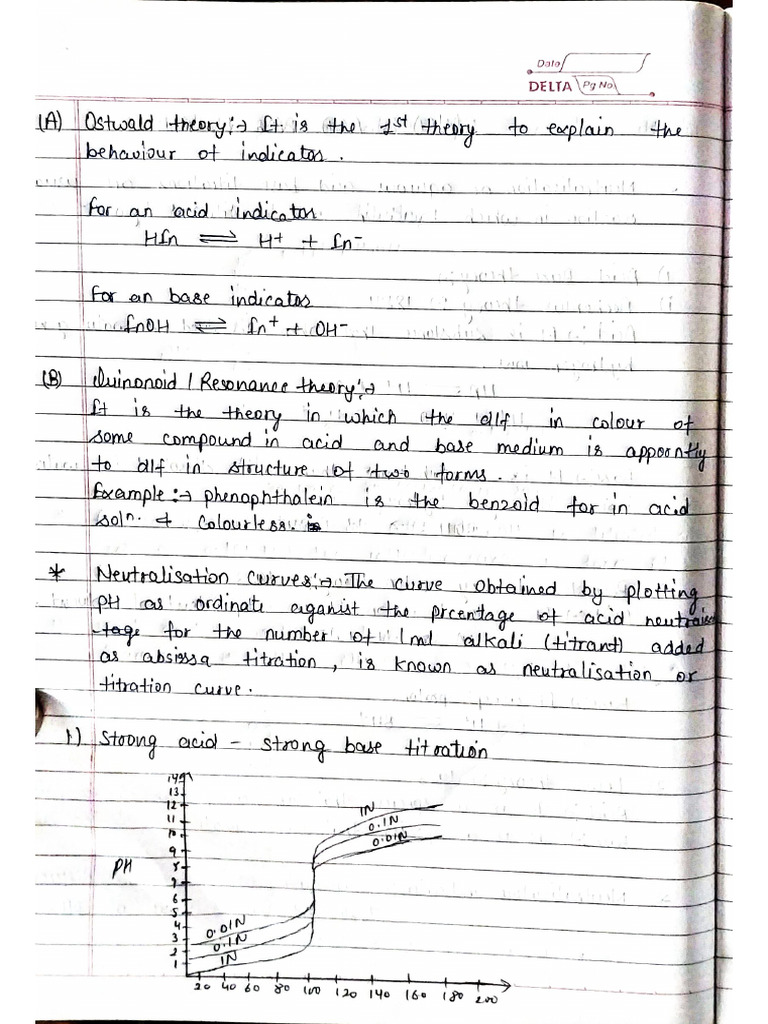 Date
DELTA Pg No
(A) Ostwald theory:→ It is the 1st theory to explain the
behaviour of indicator.
for an acid indicator
HIn ⇌ H+ + In-
For an base indicator
InOH ⇌ In+ + OH-
(B) Quinonoid / Resonance theory:→
It is the theory in which the diff in colour of
some compound in acid and base medium is appoontly
to diff in structure of two forms.
Example:→ phenophthalein is the benzoid for in acid
soln. & colourless.
* Neutralisation curves:→ The curve obtained by plotting
pH as ordinate aganist the prcentage of acid neutralise
-tage for the number of 1ml alkali (titrant) added
as absissa titration, is known as neutralisation or
titration curve.
1) Stoong acid - strong base titoation
14
13
12
11
10
9
8
7
6
5
4
3
2
1
PH
1N
0.1N
0.01N
0.01N
0.1N
1N
20 40 60 80 100 120 140 160 180 200